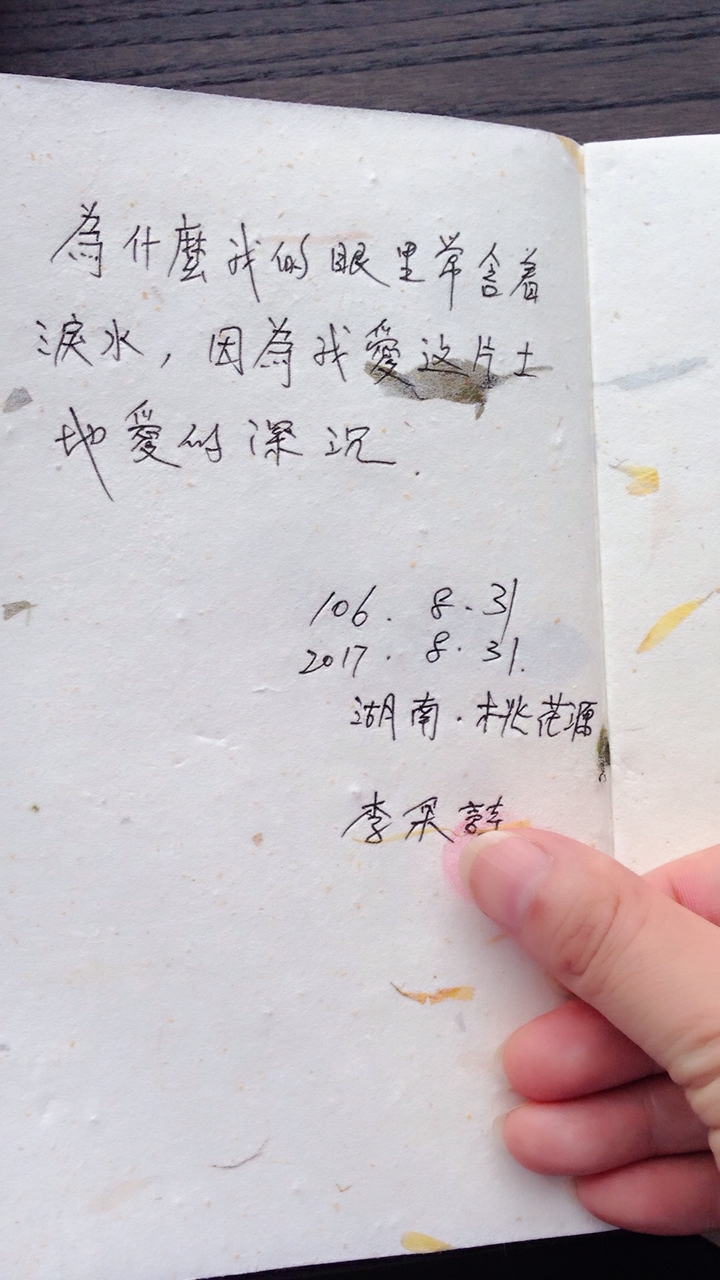 為什麼我的眼里常含着
淚水，因為我愛这片土
地愛的深沉.
106. 8. 31
2017. 8. 31.
湖南·桃花源
李采